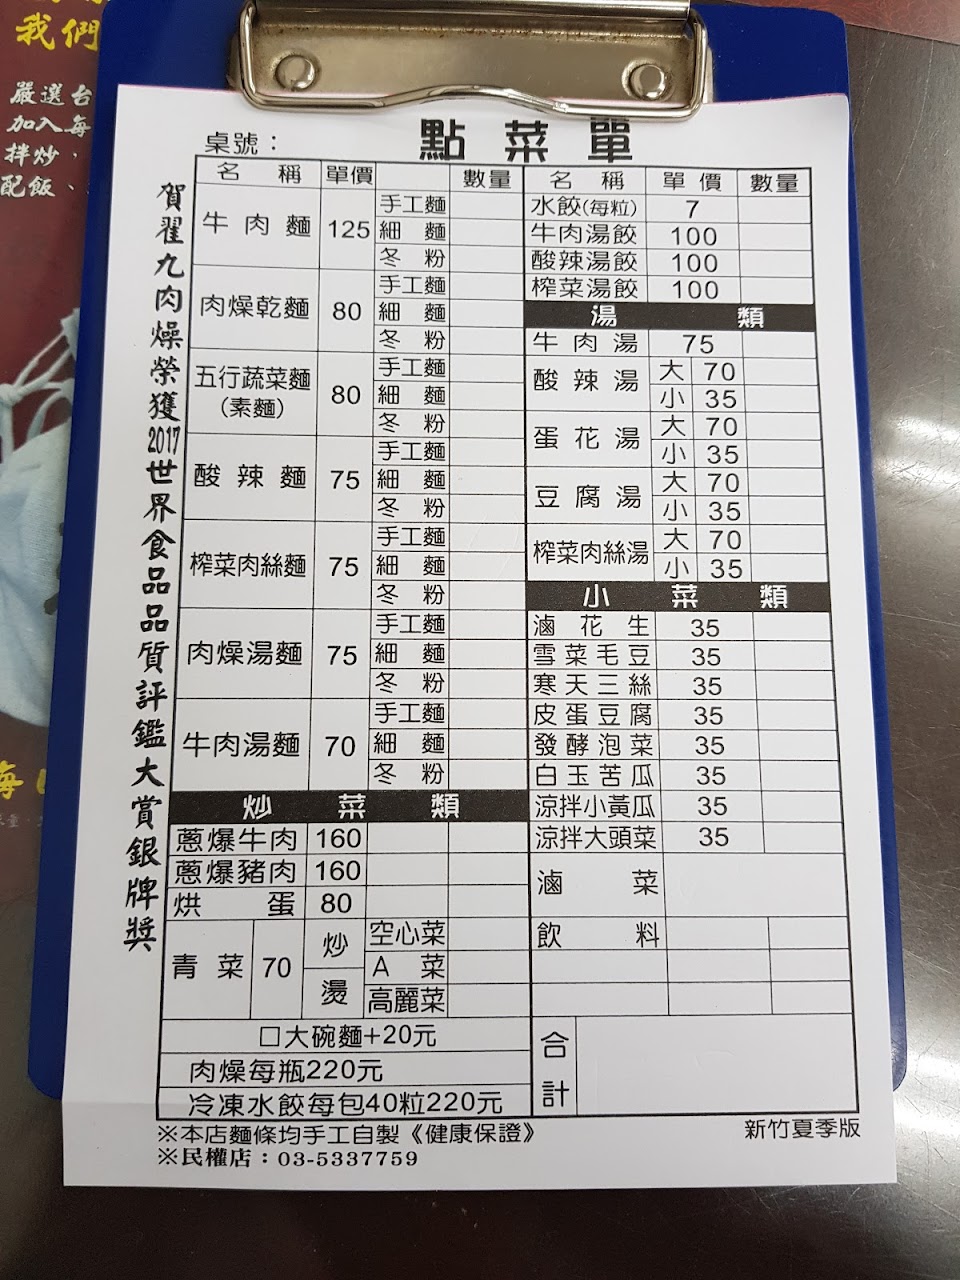 我們
嚴選台
加入每
拌炒、
配飯、
桌號：
點菜單
賀翟九肉燥榮獲2017世界食品品質評鑑大賞銀牌獎
名稱 單價 數量
牛肉麵 125 手工麵
細麵
冬粉
肉燥乾麵 80 手工麵
細麵
冬粉
五行蔬菜麵 (素麵) 80 手工麵
細麵
冬粉
酸辣麵 75 手工麵
細麵
冬粉
榨菜肉絲麵 75 手工麵
細麵
冬粉
肉燥湯麵 75 手工麵
細麵
冬粉
牛肉湯麵 70 手工麵
細麵
冬粉
炒菜類
蔥爆牛肉 160
蔥爆豬肉 160
烘蛋 80
青菜 70 炒 燙 空心菜
A菜
高麗菜
□大碗麵+20元
肉燥每瓶220元
冷凍水餃每包40粒220元
名稱 單價 數量
水餃(每粒) 7
牛肉湯餃 100
酸辣湯餃 100
榨菜湯餃 100
湯類
牛肉湯 75
酸辣湯 大 70
小 35
蛋花湯 大 70
小 35
豆腐湯 大 70
小 35
榨菜肉絲湯 大 70
小 35
小菜類
滷花生 35
雪菜毛豆 35
寒天三絲 35
皮蛋豆腐 35
發酵泡菜 35
白玉苦瓜 35
涼拌小黃瓜 35
涼拌大頭菜 35
滷菜
飲料
合計
※本店麵條均手工自製《健康保證》
新竹夏季版
※民權店：03-5337759
每